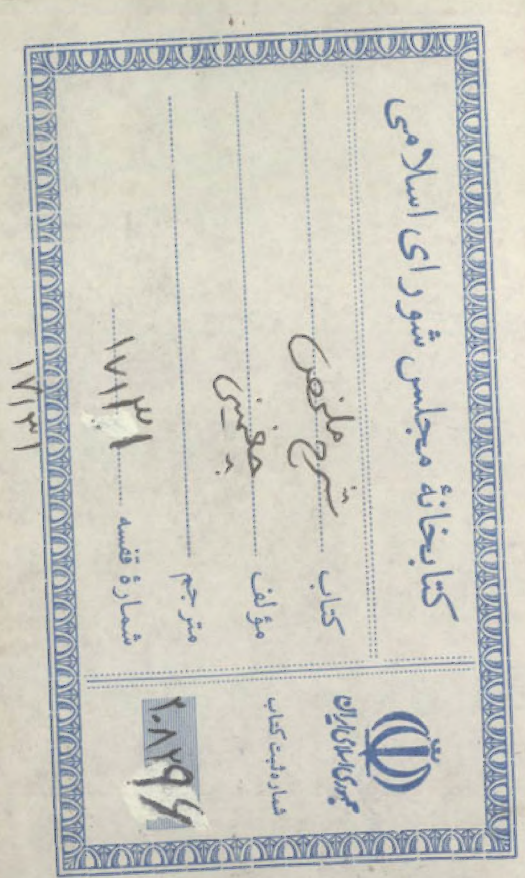 کتابخانهٔ مجلس شورای اسلامی
کتاب شرح ملخص
مؤلف چغمینی
مترجم
شمارهٔ قفسه ۱۷۱۳۱
۱۷۱۳۱
جمهوری اسلامی ایران
شمارهٔ ثبت کتاب
۲۰۸۲۹۶